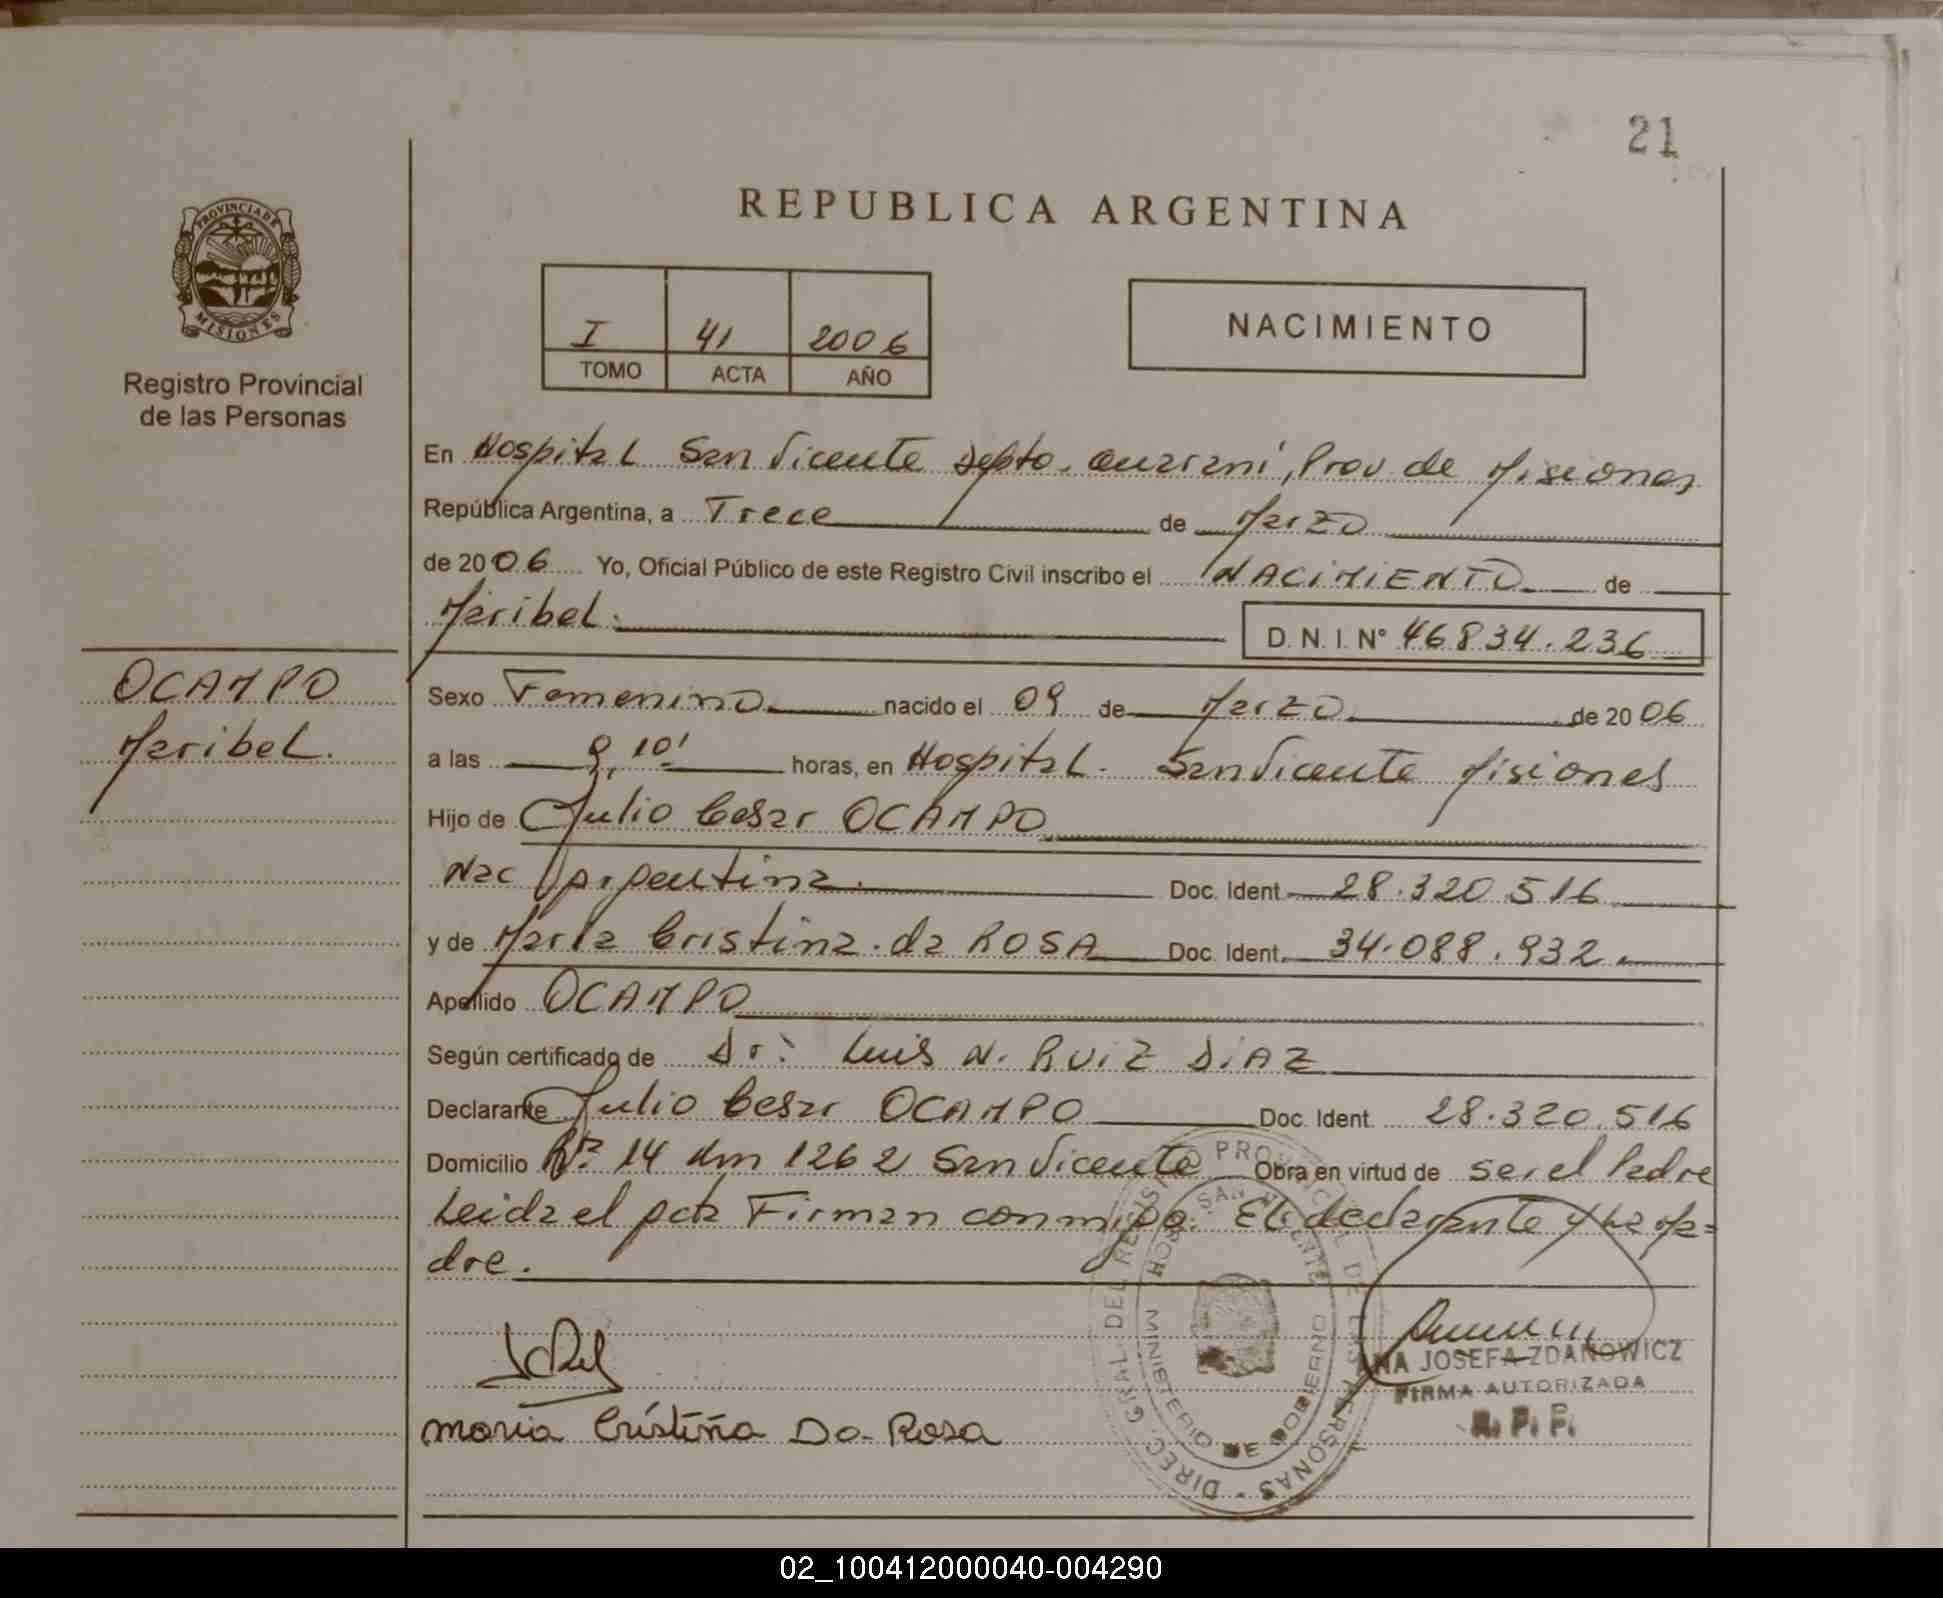 21
REPUBLICA ARGENTINA
PROVINCIA DE
MISIONES
Registro Provincial
de las Personas
I 41 2006
TOMO ACTA AÑO
NACIMIENTO
En Hospital San Vicente Depto. Guarani, Prov de Misiones
República Argentina, a Trece de Marzo
de 2006 Yo, Oficial Público de este Registro Civil inscribo el NACIMIENTO de
Maribel.
D.N.I. N° 46834.236
OCAMPO
Maribel.
Sexo Femenino nacido el 09 de Marzo de 2006
a las 9,10' horas, en Hospital. San Vicente Misiones
Hijo de Julio Cesar OCAMPO
Nac Argentina. Doc. Ident. 28.320.516
y de Maria Cristina da ROSA Doc. Ident. 34.088.932
Apellido OCAMPO
Según certificado de Dr: Luis N. RUIZ DIAZ
Declarante Julio Cesar OCAMPO Doc. Ident. 28.320.516
Domicilio Rta 14 Km 1262 San Vicente Obra en virtud de ser el Padre
Leida el acta Firman conmigo. El declarante y La Ma=
dre.
DIREC. GRAL. DEL REGISTRO PROVINCIAL DE LAS PERSONAS
HOSP. SAN VICENTE
MINISTERIO DE GOBIERNO
ANA JOSEFA ZDANOWICZ
FIRMA AUTORIZADA
R. P. P.
maria Cristina Da Rosa
02_100412000040-004290